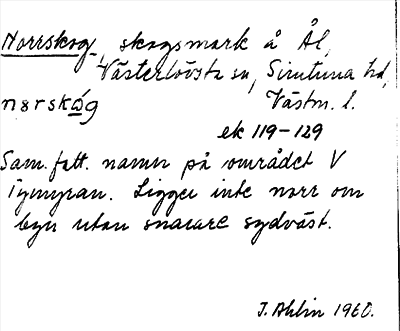 Norrskog, skogsmark å Ål,
Västerlövsta sn, Simtuna hd,
norskó̱g Västm. l.
ek 119-129
Sam. fatt. namn på området V
Tjymyran. Ligger inte norr om
byn utan snarare sydväst.
J. Ahlin 1960.